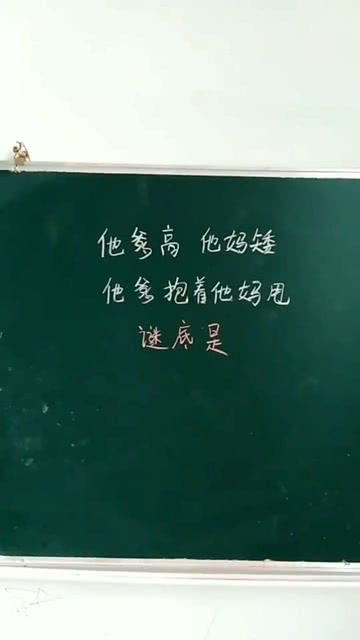 他爹高 他妈矮
他爹抱着他妈甩
谜底是